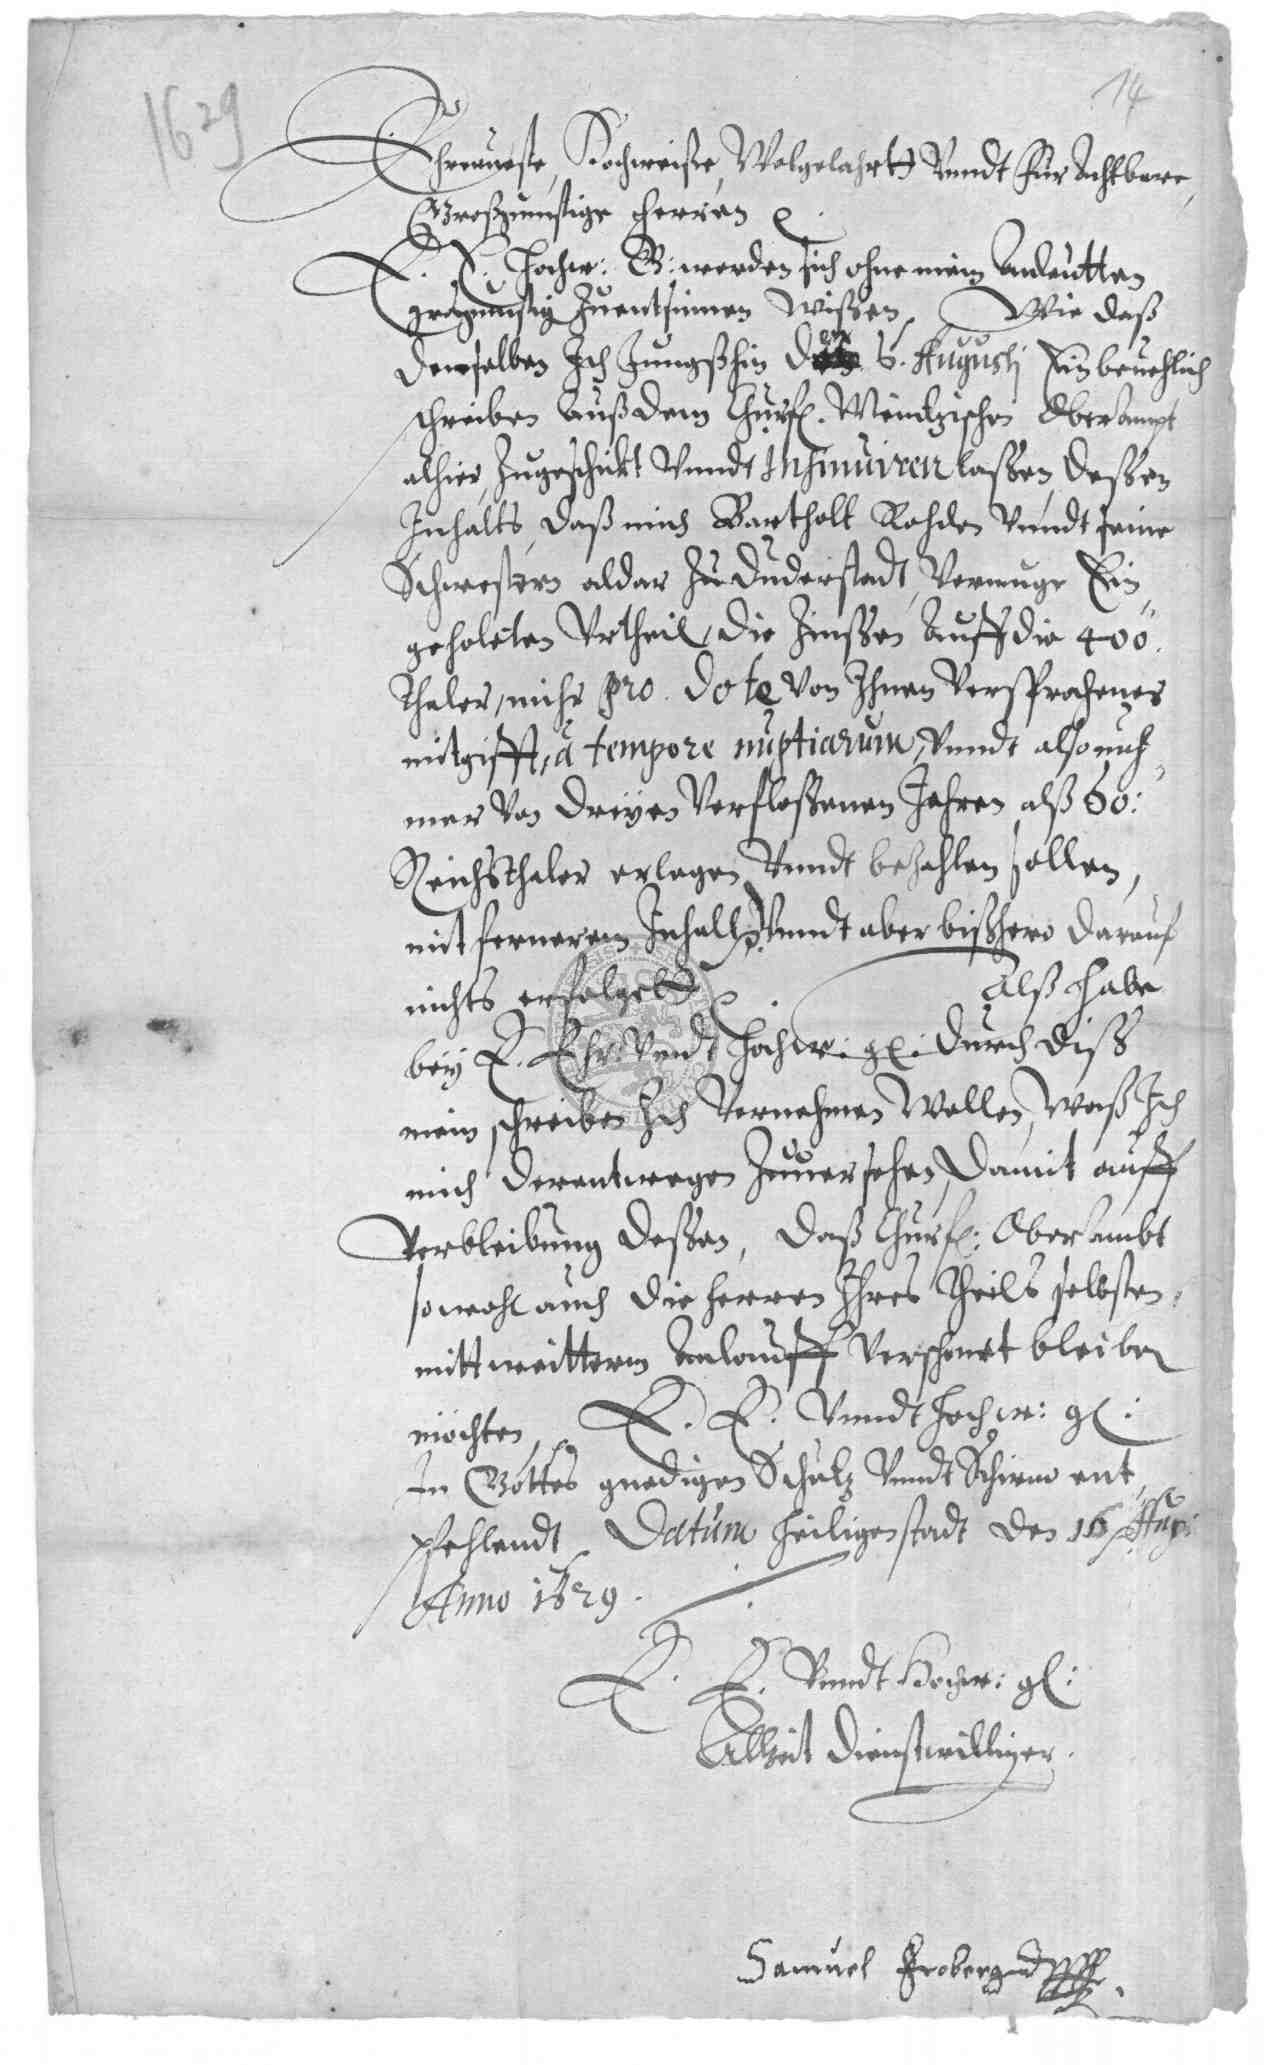 1629
14
Ehrnueste, Hochweise, Wolgelahrtt Vnndt für Achtbare,
Großgünstige Herren
E. E. Hochw: G: werden sich ohne mein Andeutten
großgünstig Zuentsinnen wißen, Wie daß
denselben Ich Jungsthin den 6. Augusti Ein beuehlich
schreiben Auß dem Churf. Meintzischen Oberampt
alhier, Zugeschickt Vnndt Insinuiren laßen, deßen
Inhalts, daß mich Barthollt Rohden Vnndt seine
Schwestern aldar Zu Duderstadt, Vermuge Ein
geholeten Vrtheil, die Zinßen Auff die 400.
Thaler, mihr pro. dote von Ihnen Versprochener
mitgifft, a tempore nuptiarum, Vnndt also nuh
mer Von dreyen Verfloßenen Jahren, alß 60:
Reichsthaler erlegen Vnndt bezahlen sollen,
mit fernerem Inhallt, Vnndt aber bißhero darauf
nichts erfolgett Alß habe
bey E. Ehr: Vnndt Hochw: gl: durch diß
mein schreiben Ich Vernehmen Wollen, Waß Ich
mich derentwegen Zuuersehen, damit auff
Verbleibung deßen, daß Churf: Oberambt
sowohl auch die Herren Ihres Theils selbsten,
mitt weitterm Anlauff Verschonet bleiben
möchten, E. E. Vnndt Hochw: gl:
In Gottes gnedigen Schutz Vnndt Schirm ent
pfehlendt, Datum Heiligenstadt den 16 Aug:
Anno 1629.
E. E. Vnndt Hochw: gl:
Allzeit Dienstwilliger
Samuel Froberg